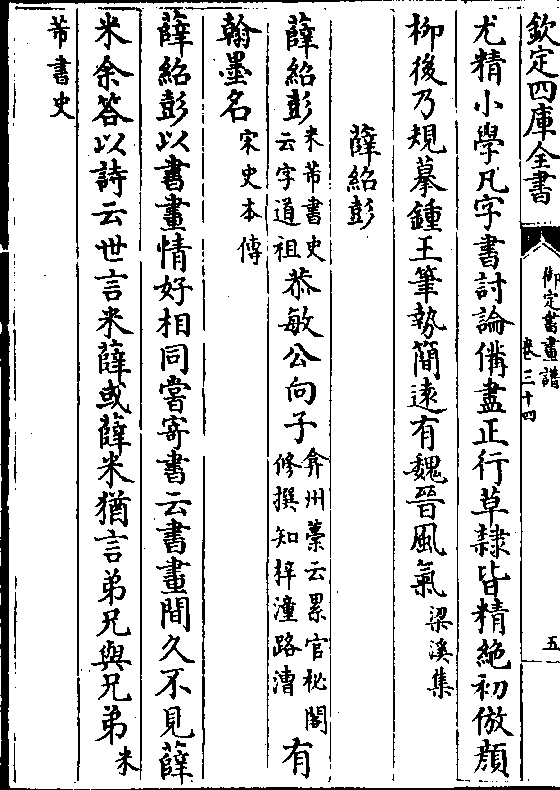 欽定四庫全書
御定書畫譜
卷三十四
五
尤精小學凡字書討論備盡正行草隸皆精絶初倣顔
柳後乃規摹鍾王筆勢簡遠有魏晉風氣梁溪集
薛紹彭
薛紹彭米芾書史云字道祖恭敏公向子弇州藁云累官祕閣修撰知梓潼路漕有
翰墨名宋史本傳
薛紹彭以書畫情好相同嘗寄書云書畫間久不見薛
米余答以詩云世言米薛或薛米猶言弟兄與兄弟米
芾書史